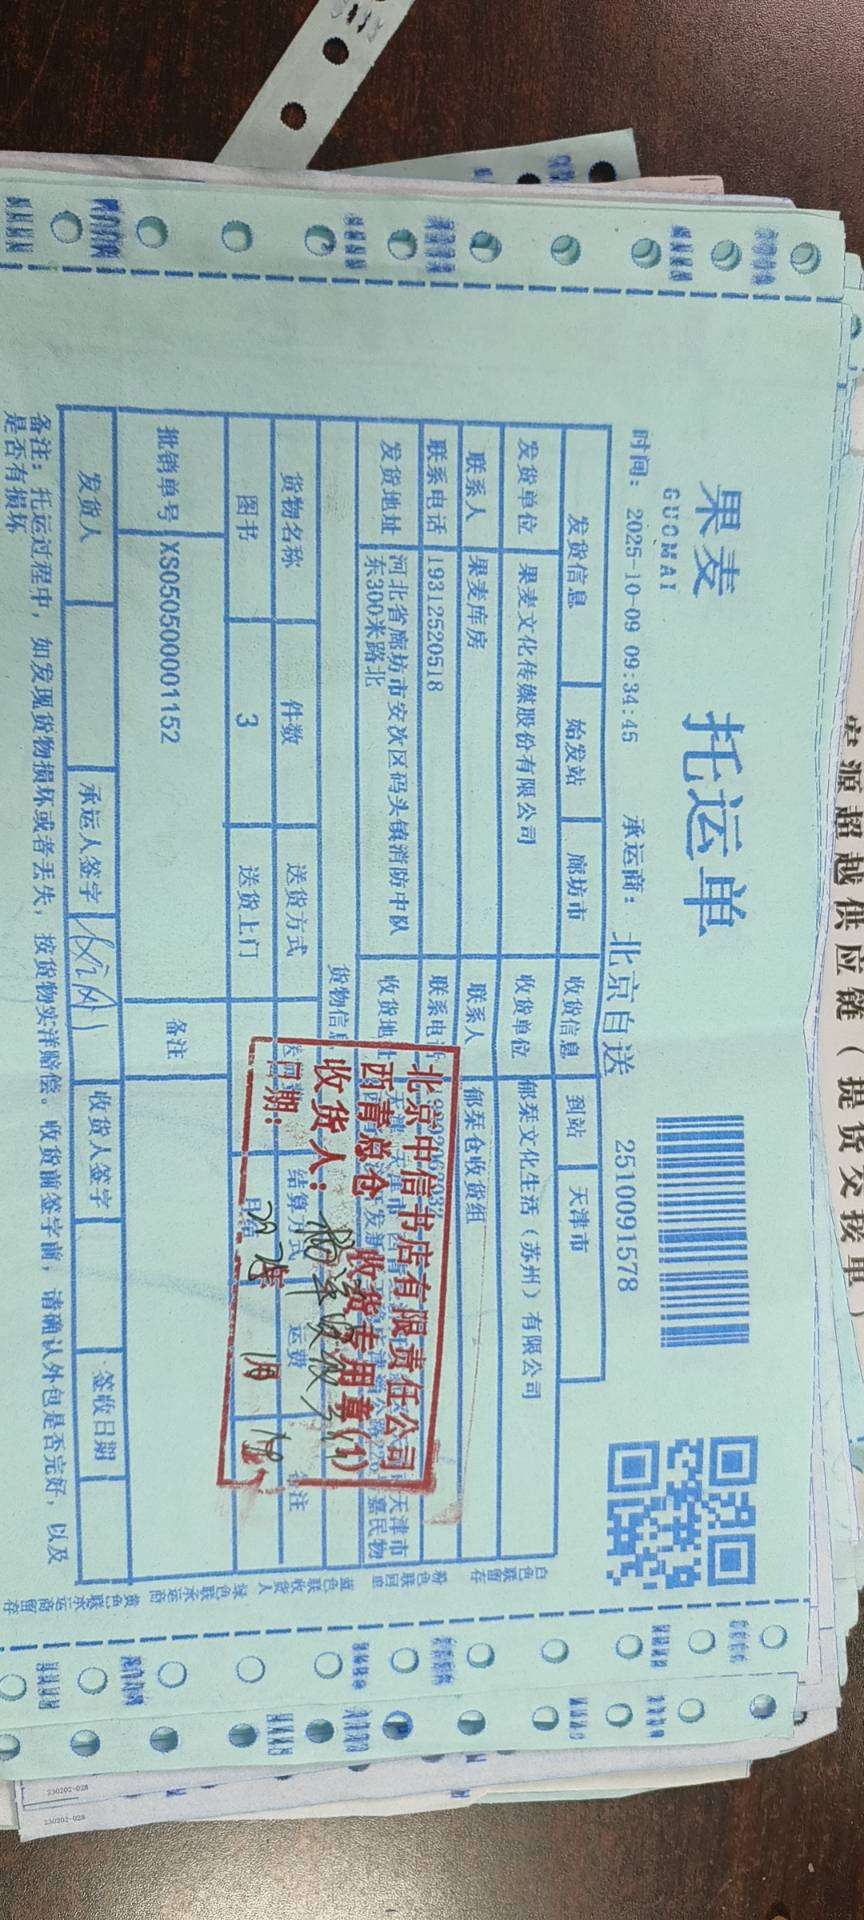 果麦 托运单
GUOMAI
时间: 2025-10-09 09:34:45 承运商: 北京自送 2510091578
发货信息 始发站 廊坊市 收货信息 到站 天津市
发货单位 果麦文化传媒股份有限公司 收货单位 郁栞文化生活(苏州)有限公司
联系人 果麦库房 联系人 郁栞仓收货组
联系电话 19312520518 联系电话
发货地址 河北省廊坊市安次区码头镇消防中队东300米路北 收货地址
货物信息
货物名称 件数 送货方式 结算方式 运费 备注
图书 3 送货上门
批销单号 XS050500001152 备注
发货人 承运人签字 收货人签字 签收日期
备注: 托运过程中, 如发现货物损坏或者丢失, 按货物实洋赔偿。收货前签字前, 请确认外包是否完好, 以及
是否有损坏
北京中信书店有限责任公司
西青总仓 收货专用章(1)
收货人:
日期:
白色联留存 粉色联回单 蓝色联收货人 绿色联承运商 黄色联承运商留存
宏源超越供应链(提货交接单)
230202-028
230202-028